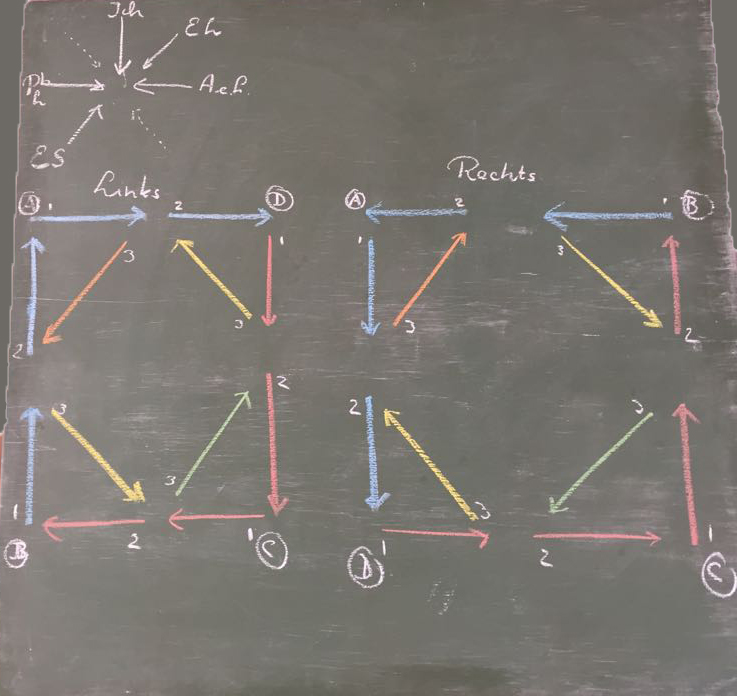 Ich
Eh
ES
Links
Rechts
A 1 2 D
A 2 B
1 1
3 3
3 3
2 2
3 2 2 3
3 3
1 2 1 C
B
D 1 2 1
C